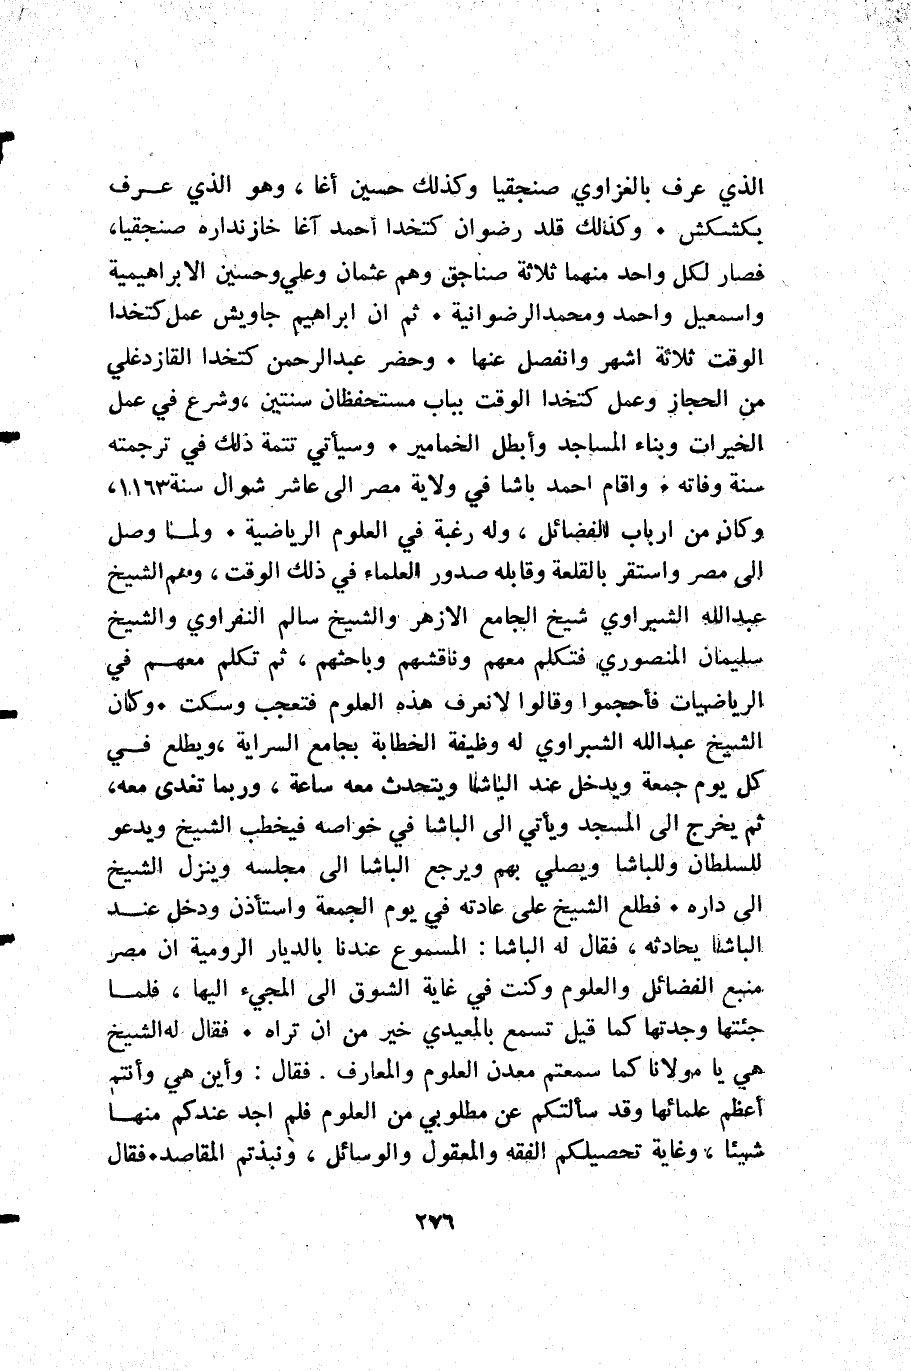 الذي عرف بالغزاوي صنجقيا وكذلك حسين أغا ، وهو الذي عـرف
بكشكش • وكذلك قلد رضوان كتخدا أحمد آغا خازنداره صنجقيا،
فصار لكل واحد منهما ثلاثة صناجق وهم عثمان وعلي وحسين الابراهيمية
واسمعيل واحمد ومحمد الرضوانية • ثم ان ابراهيم جاويش عمل كتخدا
الوقت ثلاثة اشهر وانفصل عنها • وحضر عبدالرحمن كتخدا القازدغلي
من الحجاز وعمل كتخدا الوقت بباب مستحفظان سنتين ،وشرع في عمل
الخيرات وبناء المساجد وأبطل الخمامير • وسيأتي تتمة ذلك في ترجمته
سنة وفاته • واقام احمد باشا في ولاية مصر الى عاشر شوال سنة ١١٦٣،
وكان من ارباب الفضائل ، وله رغبة في العلوم الرياضية • ولمـا وصل
الى مصر واستقر بالقلعة وقابله صدور العلماء في ذلك الوقت ، ومهم الشيخ
عبدالله الشبراوي شيخ الجامع الازهر والشيخ سالم النفراوي والشيخ
سليمان المنصوري فتكلم معهم وناقشهم وباحثهم ، ثم تكلم معهـم في
الرياضيات فأحجموا وقالوا لانعرف هذه العلوم فتعجب وسكت •وكان
الشيخ عبدالله الشبراوي له وظيفة الخطابة بجامع السراية ،ويطلع فـي
كل يوم جمعة ويدخل عند الباشا ويتحدث معه ساعة ، وربما تغدى معه،
ثم يخرج الى المسجد ويأتي الى الباشا في خواصه فيخطب الشيخ ويدعو
للسلطان وللباشا ويصلي بهم ويرجع الباشا الى مجلسه وينزل الشيخ
الى داره • فطلع الشيخ على عادته في يوم الجمعة واستأذن ودخل عنـد
الباشا يحادثه ، فقال له الباشا : المسموع عندنا بالديار الرومية ان مصر
منبع الفضائل والعلوم وكنت في غاية الشوق الى المجيء اليها ، فلمـا
جئتها وجدتها كما قيل تسمع بالمعيدي خير من ان تراه • فقال له الشيخ
هي يا مولانا كما سمعتم معدن العلوم والمعارف . فقال : وأين هي وأنتم
أعظم علمائها وقد سألتكم عن مطلوبي من العلوم فلم اجد عندكم منهـا
شيئا ، وغاية تحصيلكم الفقه والمعقول والوسائل ، ونبذتم المقاصد•فقال
٢٧٦